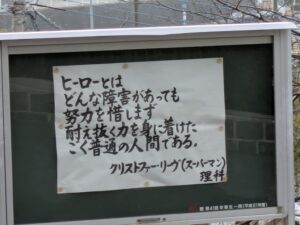 ヒーローとは
どんな障害があっても
努力を惜します
耐え抜く力を身に着けた
ごく普通の人間である。
クリストファー・リーヴ(スーパーマン)
理科